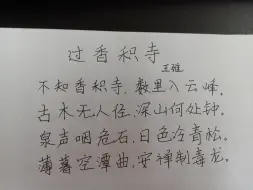 过香积寺
王维
不知香积寺，数里入云峰。
古木无人径，深山何处钟。
泉声咽危石，日色冷青松。
薄暮空潭曲，安禅制毒龙。